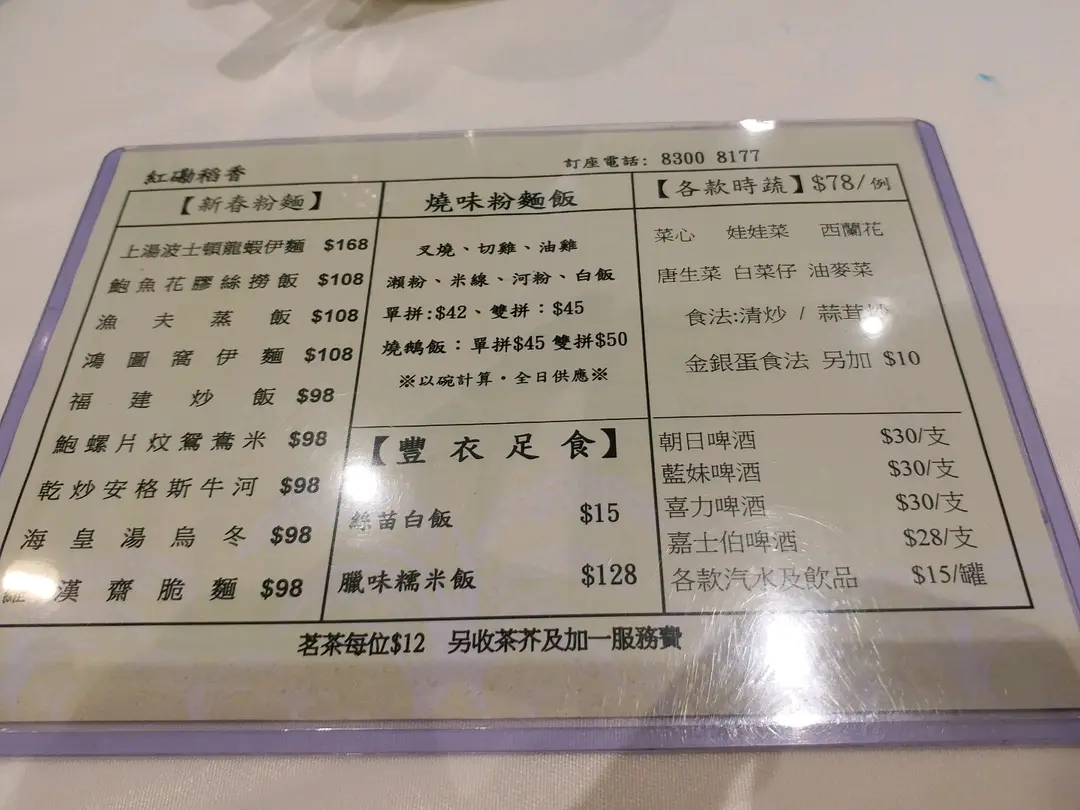 紅磡稻香
訂座電話: 8300 8177
【新春粉麵】
上湯波士頓龍蝦伊麵 $168
鮑魚花膠絲撈飯 $108
漁夫蒸飯 $108
鴻圖窩伊麵 $108
福建炒飯 $98
鮑螺片炆鴛鴦米 $98
乾炒安格斯牛河 $98
海皇湯烏冬 $98
羅漢齋脆麵 $98
燒味粉麵飯
叉燒、切雞、油雞
瀨粉、米線、河粉、白飯
單拼:$42、雙拼：$45
燒鵝飯：單拼$45 雙拼$50
※以碗計算・全日供應※
【豐衣足食】
絲苗白飯 $15
臘味糯米飯 $128
【各款時蔬】$78/例
菜心 娃娃菜 西蘭花
唐生菜 白菜仔 油麥菜
食法:清炒 / 蒜茸炒
金銀蛋食法 另加 $10
朝日啤酒 $30/支
藍妹啤酒 $30/支
喜力啤酒 $30/支
嘉士伯啤酒 $28/支
各款汽水及飲品 $15/罐
茗茶每位$12 另收茶芥及加一服務費